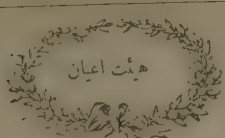 هيئت اعيان